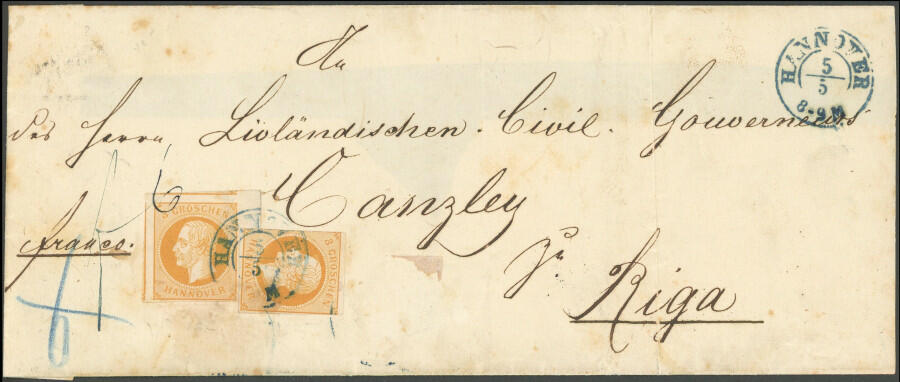 An
HANNOVER
5
5
8-9 M
des Herrn Livländischen Civil Gouverneurs
6
Canzley
franco.
3 GROSCHEN
HANNOVER
HANNOVER
5
M
3 GROSCHEN
HANNOVER
zu
Riga